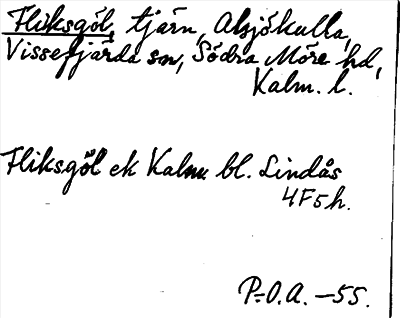 Fliksgöl, tjärn, Alsjökulla,
Vissefjärda sn, Södra Möre hd,
Kalm. l.
Fliksgöl ek Kalm bl. Lindås
4F5h.
P-O.A. -55.